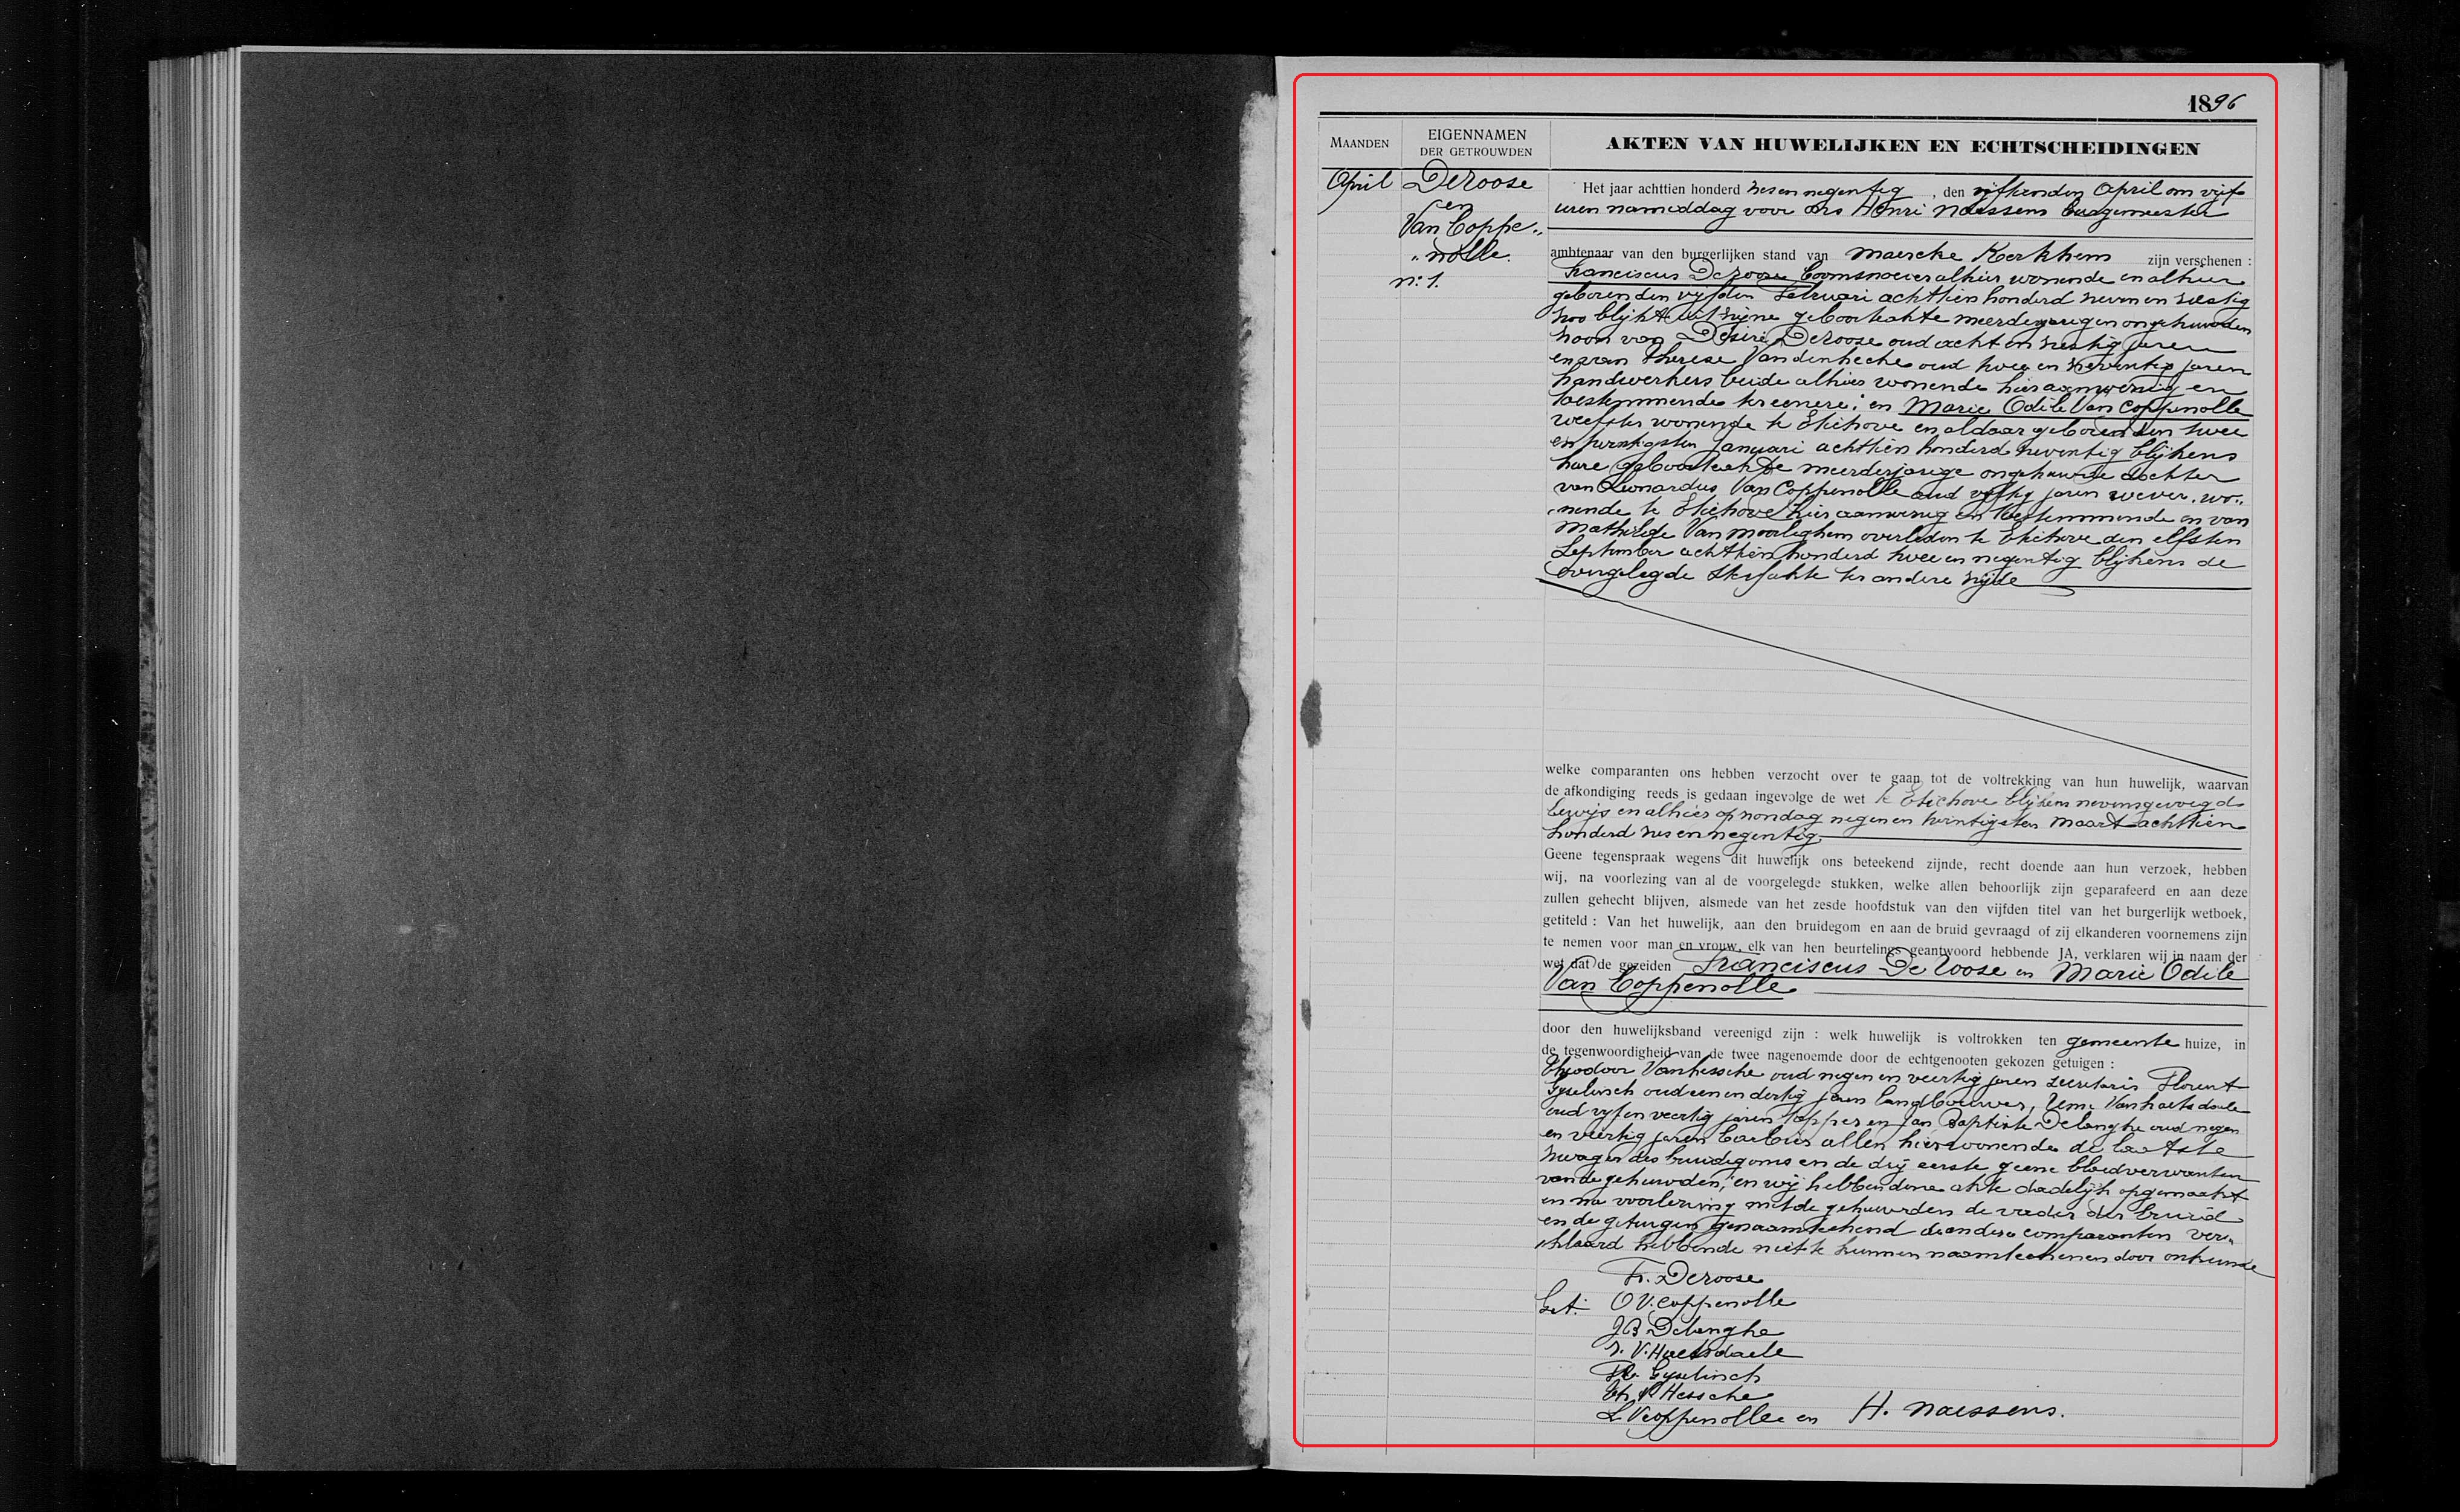 1896
MAANDEN
EIGENNAMEN
DER GETROUWDEN
AKTEN VAN HUWELIJKEN EN ECHTSCHEIDINGEN
April
Deroose
en
Van Coppe„
„nolle.
n: 1.
Het jaar achttien honderd zes en negentig, den vijftienden April om vijf
uren namiddag voor ons Henri Naessens burgemeester
ambtenaar van den burgerlijken stand van Maercke Kerkhem zijn verschenen :
Franciscus Deroose boomsnoeier alhier wonende en alhier
geboren den vijfden Februari achttien honderd zeven en zestig
zoo blijkt uit zijne geboorteakte meerderjarigen ongehuwden
zoon van Désiré Deroose oud acht en zestig jaren
en van Therese Vandenheche oud twee en zeventig jaren
handwerkers beide alhier wonende hier aanwezig en
toestemmende ter eenere; en Marie Odile Van Coppenolle
weefster wonende te Etichove en aldaar geboren den twee
en twintigsten Januari achttien honderd zeventig blijkens
hare geboorteakte meerderjarige ongehuwde dochter
van Leonardus Van Coppenolle oud vijftig jaren wever, wo„
„nende te Etichove hier aanwezig en toestemmende en van
Mathilde Van Moorleghem overleden te Etichove den elfsten
September achttien honderd twee en negentig blijkens de
overgelegde sterfakte ter andere zijde
welke comparanten ons hebben verzocht over te gaan tot de voltrekking van hun huwelijk, waarvan
de afkondiging reeds is gedaan ingevolge de wet te Etichove blijkens nevensgevoegd
bewijs en alhier op zondag negen en twintigsten Maart achttien
honderd zes en negentig
Geene tegenspraak wegens dit huwelijk ons beteekend zijnde, recht doende aan hun verzoek, hebben
wij, na voorlezing van al de voorgelegde stukken, welke allen behoorlijk zijn geparafeerd en aan deze
zullen gehecht blijven, alsmede van het zesde hoofdstuk van den vijfden titel van het burgerlijk wetboek,
getiteld : Van het huwelijk, aan den bruidegom en aan de bruid gevraagd of zij elkanderen voornemens zijn
te nemen voor man en vrouw, elk van hen beurtelings geantwoord hebbende JA, verklaren wij in naam der
wet dat de gezeiden Franciscus De roose en Marie Odile
Van Coppenolle
door den huwelijksband vereenigd zijn : welk huwelijk is voltrokken ten gemeente huize, in
de tegenwoordigheid van de twee nagenoemde door de echtgenooten gekozen getuigen :
Theodoor Vanhessche oud negen en veertig jaren secretaris Florent
Gyselinch oud een en dertig jaren landbouwer, Vanhaetsdaele
oud vijf en veertig jaren tapper en Jan Baptiste Delanghe oud negen
en veertig jaren barbier allen hier wonende de laatste
zwager des bruidegoms en de drij eerste geene bloedverwanten
van de gehuwden; en wij hebben deze akte dadelijk opgemaakt
en na voorlezing met de gehuwden de vader der bruid
en de getuigen genaamteekend de andere comparanten ver„
„klaard hebbende niet te kunnen naamteekenen door onkunde
Get: Fr. Deroose
O V. Coppenolle
J B Delanghe
V. Haetsdaele
Fl. Gyselinch
Th. V. Hessche
L. Vcoppenolle en H. Naessens.